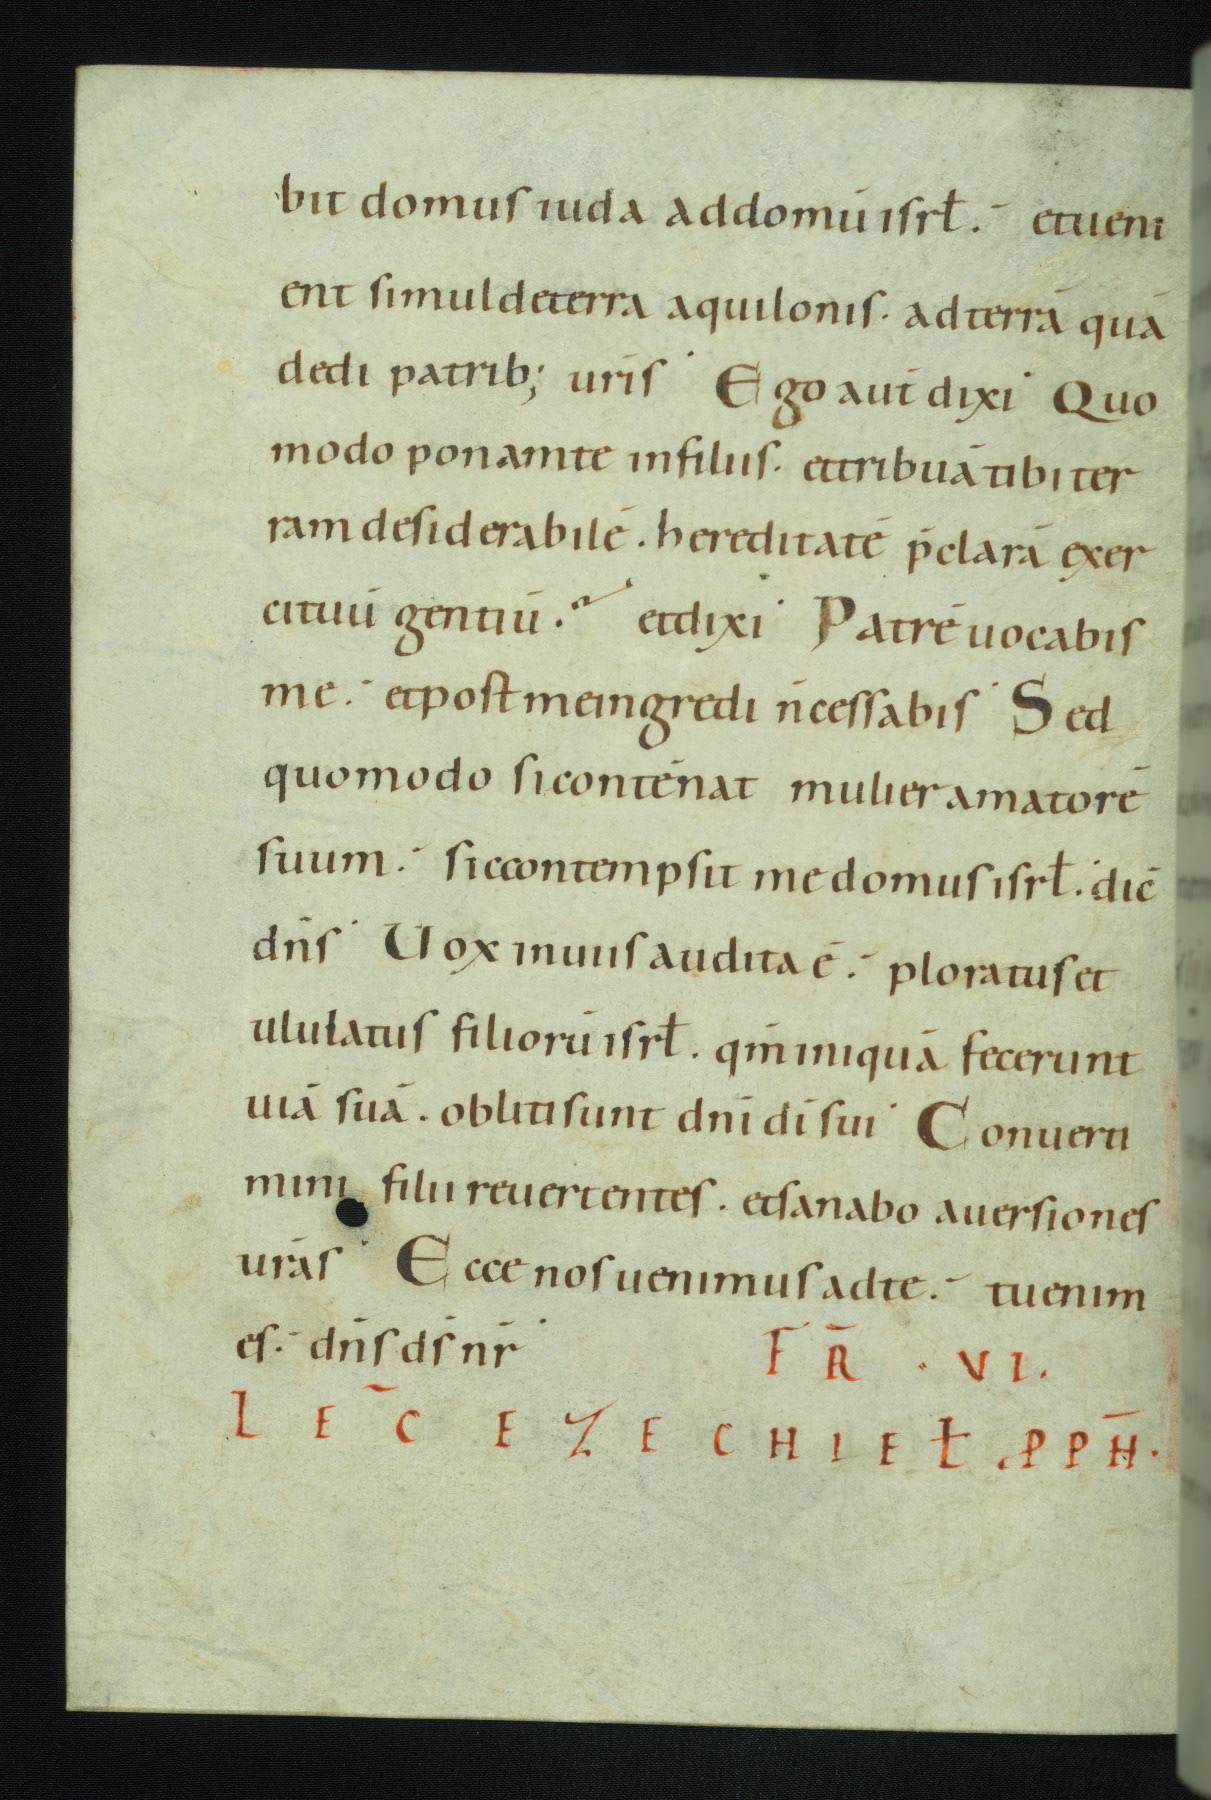 bit domus iuda ad domū isrł. et ueni
ent simul de terra aquilonis. ad terrā quā
dedi patrib; uris̄ Ego aut̄ dixi Quo
modo ponam te in filiis. et tribuā tibi ter
ram desiderabilē. hereditatē p̄clarā exer
cituū gentiū. et dixi Patrē uocabis
me. et post me ingredi n̄ cessabis Sed
quomodo si contēnat mulier amatorē
suum. sic contempsit me domus isrł. dic̄
dn̄s Uox in uiis audita ē. ploratus et
ululatus filiorū isrł. qm̄ iniquā fecerunt
uiā suā. obliti sunt dn̄i dī sui Conuerti
mini filii reuertentes. et sanabo auersiones
ur̄as Ecce nos uenimus ad te. tu enim
es. dn̄s ds̄ nr̄ FR̄. VI.
LEC̄ EZECHIEŁ PPH̄.